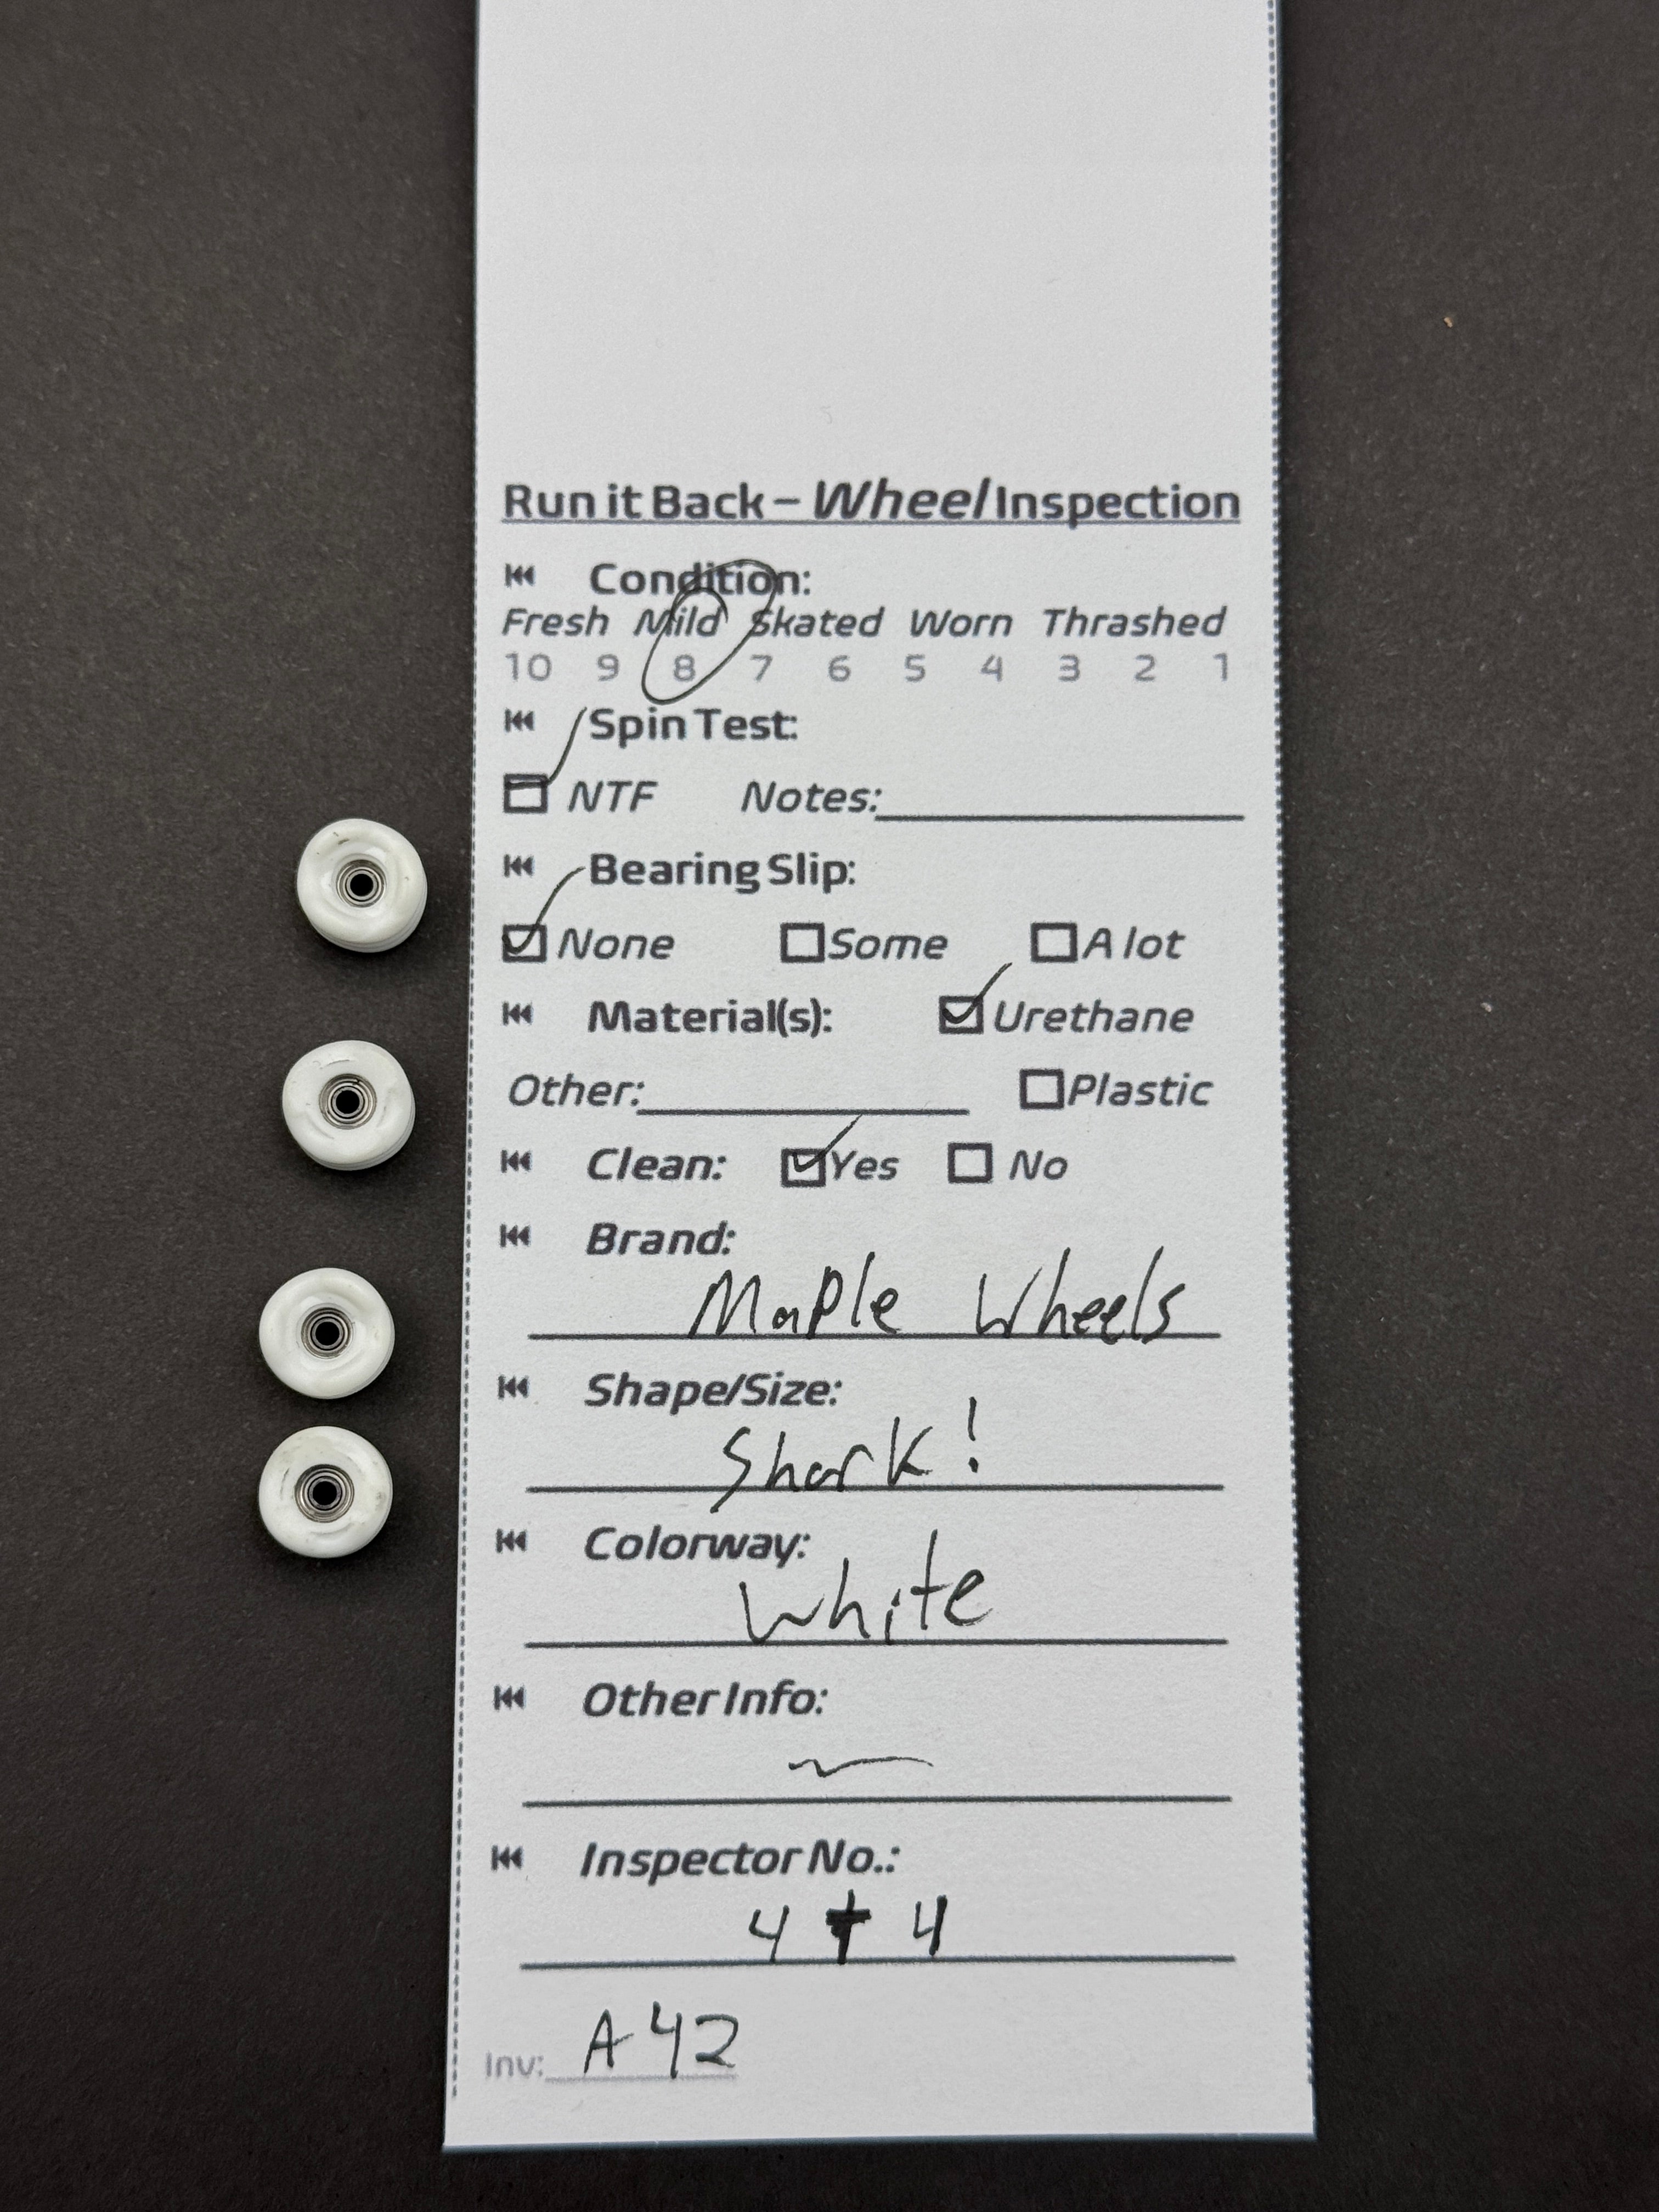 Run it Back – Wheel Inspection
Condition:
Fresh Mild Skated Worn Thrashed
10 9 8 7 6 5 4 3 2 1
Spin Test:
NTF Notes:
Bearing Slip:
None Some A lot
Material(s): Urethane
Other: Plastic
Clean: Yes No
Brand:
Maple Wheels
Shape/Size:
Shark!
Colorway:
White
Other Info:
Inspector No.:
4 + 4
Inv: A42